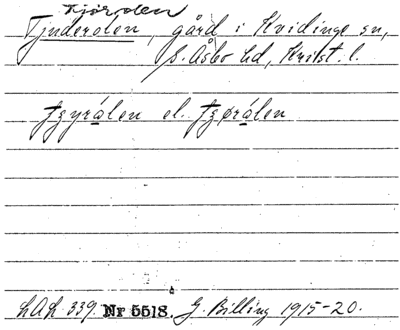 Kjörolen
Tjuderolen, gård i Kvidinge sn,
S. Åsbo hd, Krist. l.
tzyrålen el. tzørålen
LAL 339. Nr 5518. G. Billing 1915-20.